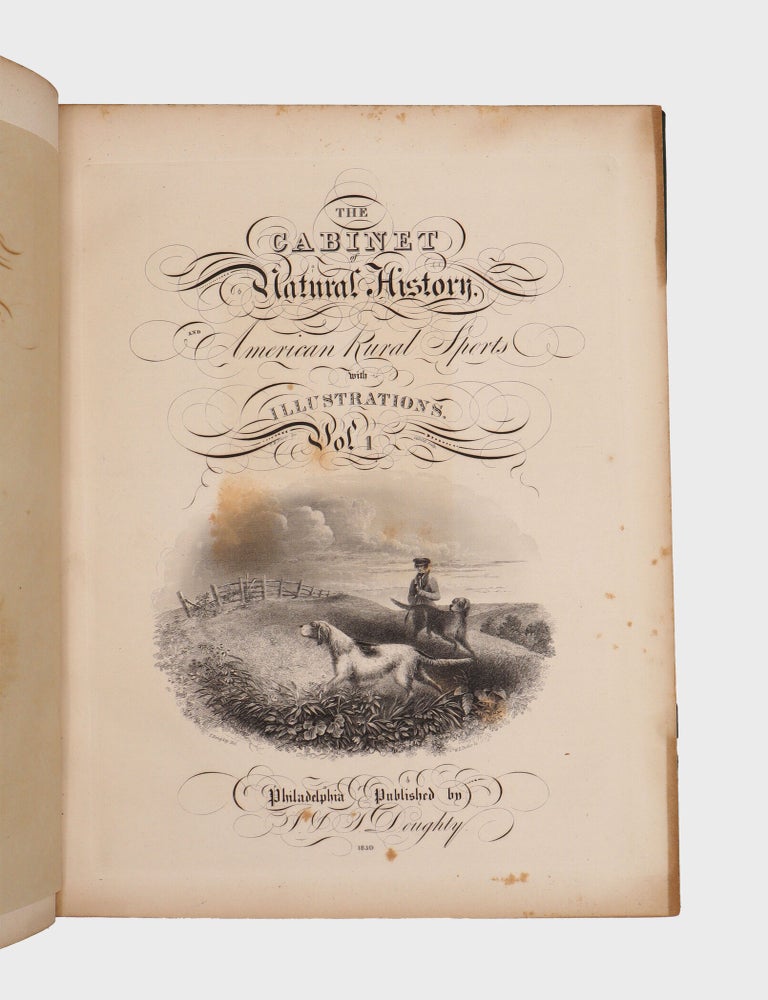 THE
CABINET
of
Natural History,
AND
American Rural Sports
with
ILLUSTRATIONS.
Vol. 1
Philadelphia Published by
J & T Doughty.
1830